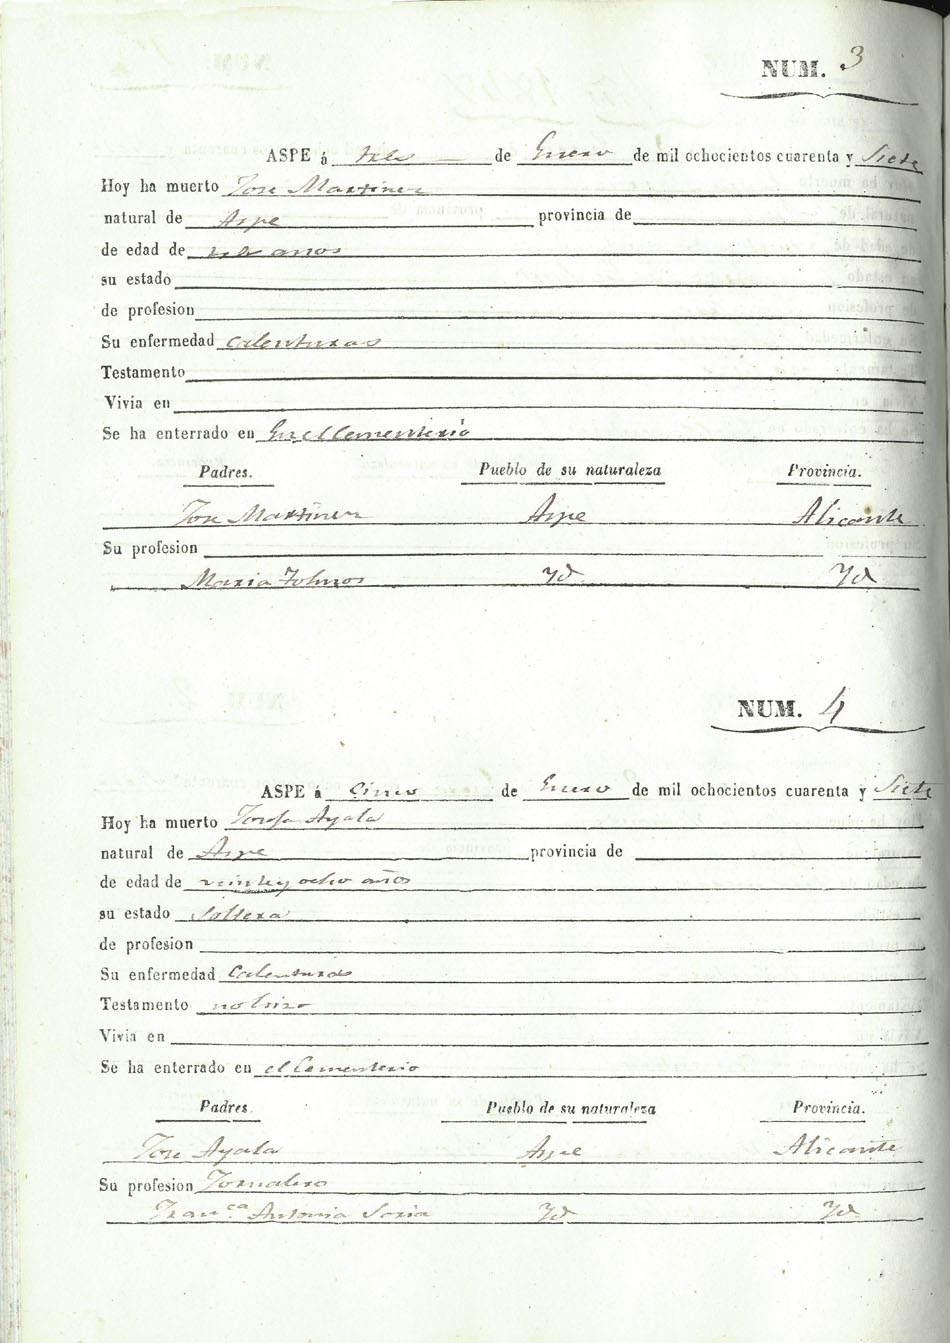 NUM. 3
ASPE á tres de Enero de mil ochocientos cuarenta y Siete
Hoy ha muerto Jose Martinez
natural de Aspe provincia de
de edad de años
su estado
de profesion
Su enfermedad Calenturas
Testamento
Vivia en
Se ha enterrado en En el Cementerio
Padres. Pueblo de su naturaleza Provincia.
Jose Martinez Aspe Alicante
Su profesion
Maria Yd Yd
NUM. 4
ASPE á Cinco de Enero de mil ochocientos cuarenta y Siete
Hoy ha muerto Ayala
natural de Aspe provincia de
de edad de veinte y ocho años
su estado Soltera
de profesion
Su enfermedad Calenturas
Testamento no hizo
Vivia en
Se ha enterrado en el Cementerio
Padres. Pueblo de su naturaleza Provincia.
Jose Ayala Aspe Alicante
Su profesion Jornalero
Fran.ca Antonia Soria Yd Yd